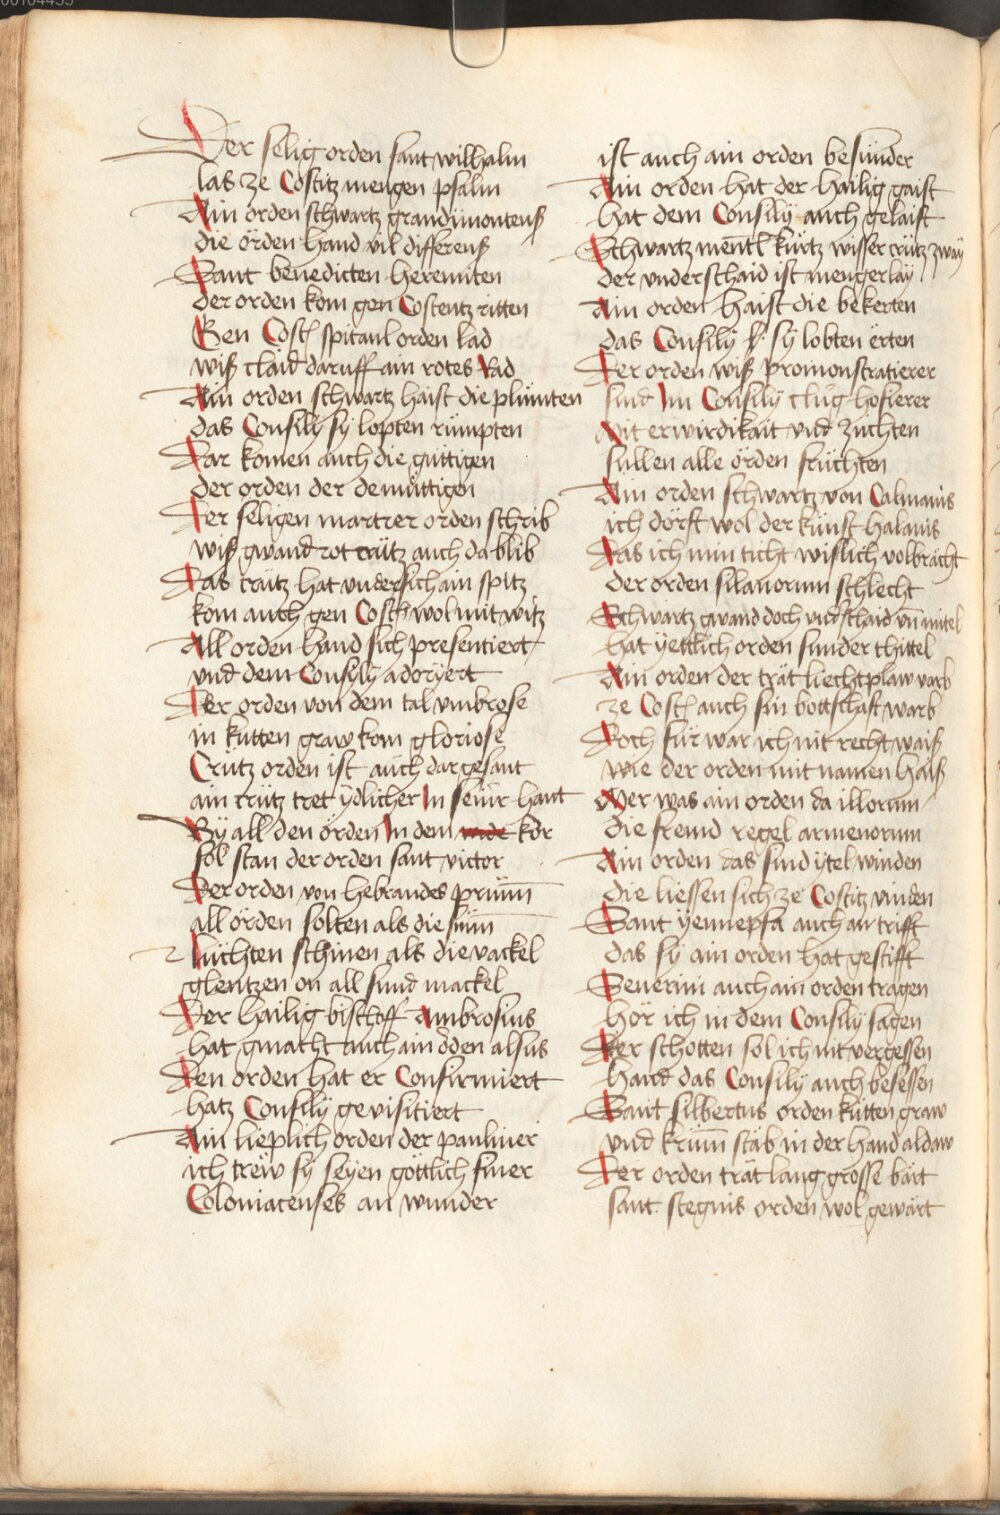 Der selig orden sant wilhalm
las ze Costitz mengen psalm
Ain orden schwartz grandimontenß
die örden hand vil differenß
Sant benedicten heremiten
der orden kom gen Costentz ritten
Gen Cost spitaul orden lad
wiß claid daruff ain rotes Rad
Ain orden schwartz haist die plümten
das Consily sy lopten rümpten
Dar komen auch die güttigen
der orden der demüttigen
Der seligen martrer orden schrib
wiß gwand rot crütz auch da blib
Das crütz hat vnder sich ain spitz
kom auch gen Cost wol mit witz
All orden hand sich presentiert
vnd dem Consily adoryert
Der orden von dem tal vmbrose
in kutten graw kom gloriose
Crütz orden ist auch dar gesant
ain crütz tret ydlicher In seiner hant
By all den örden In dem kor
sol stan der orden sant victor
Der orden von hebrandes prünn
all örden solten als die sunn
Lüchten schinen als die vackel
glentzen on all sünd mackel
Der hailig bischoff Ambrosius
hat gmacht auch ain oden alsus
Den orden hat er Confirmiert
hatz Consily gevisitiert
Ain lieplich orden der pauliner
ich trew sy seyen göttlich finer
Coloniacenses an wunder
ist auch ain orden besunder
Ain orden hat der hailig gaist
hat dem Consily auch gelaist
Schwartz mentl kurtz wisser crütz zway
der vnderschaid ist mengerlay
Ain orden haist die bekerten
das Consily sy lobten erten
Der orden wiß premonstratierer
sind Im Consily clüg hofierer
Mit erwirdikait vnd züchten
sullen alle örden früchten
Ain orden schwartz von Calmanis
ich dörft wol der kunst halanis
Das ich min ticht wislich volbracht
der orden silanorum schlecht
Schwartz gwand doch vndschaid vn mitel
hat yettlich orden sunder thittel
Ain orden der trät liechtplaw varb
ze Cost auch sin bottschaft warb
Doch für war ich nit recht waiß
wie der orden mit namen haiß
Mer was ain orden da illorum
die fremd regel armenorum
Ain orden das sind ytel winden
die liessen sich ze Costitz vinden
Sant yennepfa auch an trifft
das sy ain orden hat gestifft
Seuerini auch ain orden tragen
hör ich in dem Consily sagen
Der schotten sol ich nit vergessen
hand das Consily auch besessen
Sant silbertus orden kutten graw
vnd krumm stäb in der hand aldaw
Der orden trät lang grosse bärt
sant stegnis orden wol gewärt